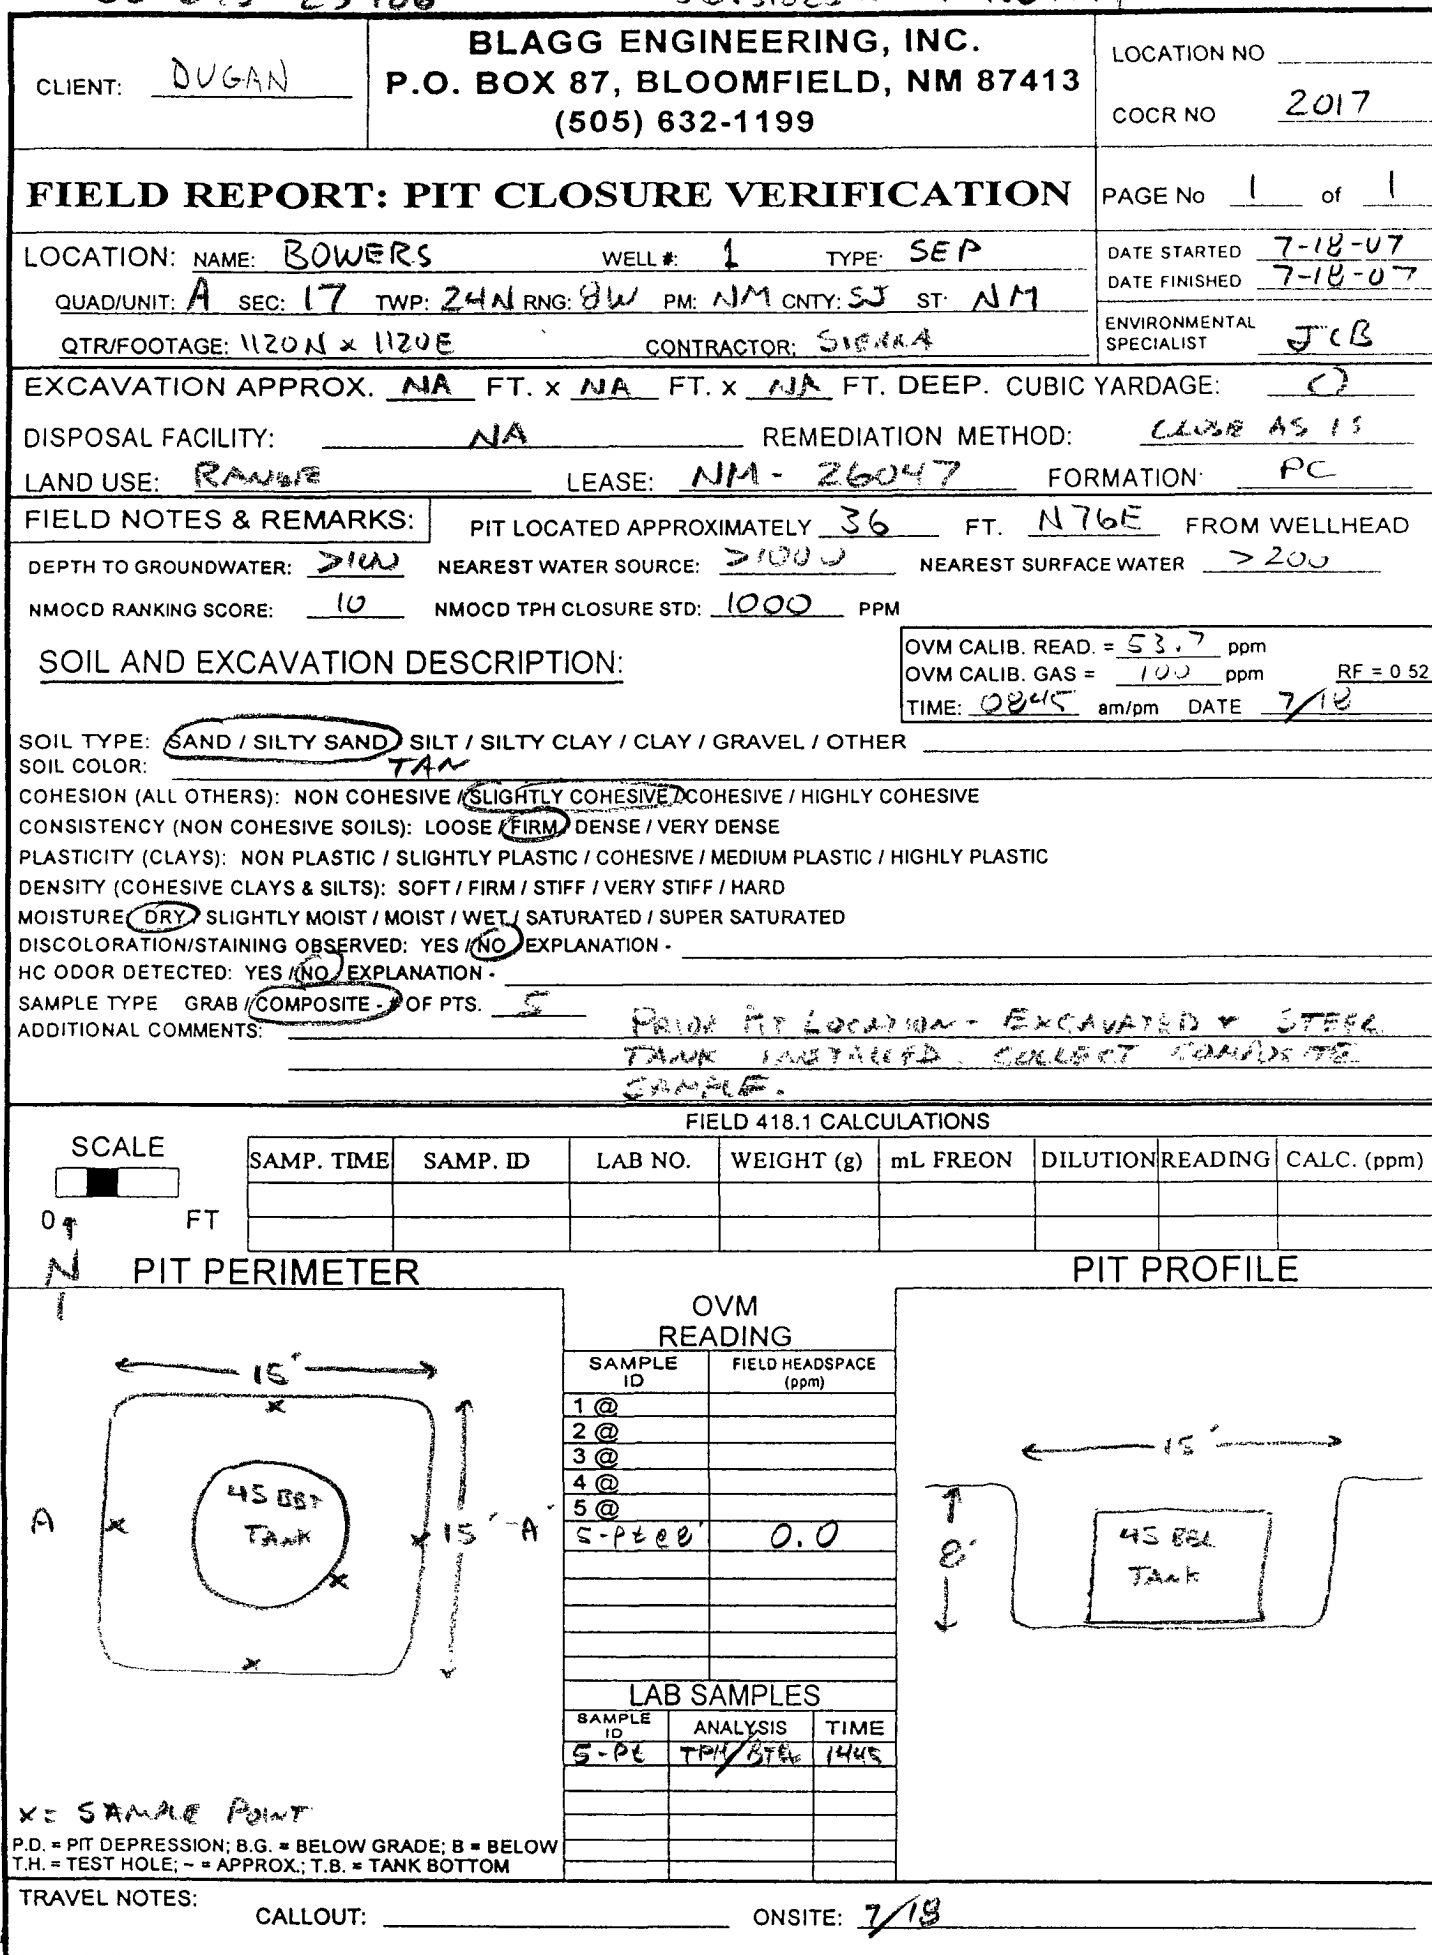 CLIENT: DUGAN
BLAGG ENGINEERING, INC.
P.O. BOX 87, BLOOMFIELD, NM 87413
(505) 632-1199
LOCATION NO
COCR NO 2017
FIELD REPORT: PIT CLOSURE VERIFICATION
PAGE No 1 of 1
LOCATION: NAME: BOWERS WELL #: 1 TYPE: SEP
DATE STARTED 7-18-07
DATE FINISHED 7-18-07
QUAD/UNIT: A SEC: 17 TWP: 24N RNG: 8W PM: NM CNTY: SJ ST: NM
QTR/FOOTAGE: 1120N x 1120E CONTRACTOR: SIERRA
ENVIRONMENTAL
SPECIALIST JCB
EXCAVATION APPROX. NA FT. x NA FT. x NA FT. DEEP. CUBIC YARDAGE: 0
DISPOSAL FACILITY: NA REMEDIATION METHOD: CLOSE AS IS
LAND USE: RANGE LEASE: NM - 26047 FORMATION: PC
FIELD NOTES & REMARKS: PIT LOCATED APPROXIMATELY 36 FT. N76E FROM WELLHEAD
DEPTH TO GROUNDWATER: >100 NEAREST WATER SOURCE: >1000 NEAREST SURFACE WATER >200
NMOCD RANKING SCORE: 10 NMOCD TPH CLOSURE STD: 1000 PPM
SOIL AND EXCAVATION DESCRIPTION:
OVM CALIB. READ. = 53.7 ppm
OVM CALIB. GAS = 100 ppm RF = 0 52
TIME: 0845 am/pm DATE 7/18
SOIL TYPE: SAND / SILTY SAND / SILT / SILTY CLAY / CLAY / GRAVEL / OTHER
SOIL COLOR: TAN
COHESION (ALL OTHERS): NON COHESIVE / SLIGHTLY COHESIVE / COHESIVE / HIGHLY COHESIVE
CONSISTENCY (NON COHESIVE SOILS): LOOSE / FIRM / DENSE / VERY DENSE
PLASTICITY (CLAYS): NON PLASTIC / SLIGHTLY PLASTIC / COHESIVE / MEDIUM PLASTIC / HIGHLY PLASTIC
DENSITY (COHESIVE CLAYS & SILTS): SOFT / FIRM / STIFF / VERY STIFF / HARD
MOISTURE: DRY / SLIGHTLY MOIST / MOIST / WET / SATURATED / SUPER SATURATED
DISCOLORATION/STAINING OBSERVED: YES / NO EXPLANATION -
HC ODOR DETECTED: YES / NO EXPLANATION -
SAMPLE TYPE GRAB / COMPOSITE - # OF PTS. 5
ADDITIONAL COMMENTS: PRIOR PIT LOCATION - EXCAVATED & STEEL
TANK INSTALLED. COLLECT COMPOSITE
SAMPLE.
FIELD 418.1 CALCULATIONS
SCALE
0 FT
SAMP. TIME SAMP. ID LAB NO. WEIGHT (g) mL FREON DILUTION READING CALC. (ppm)
N
PIT PERIMETER
PIT PROFILE
OVM
READING
SAMPLE ID FIELD HEADSPACE (ppm)
1 @
2 @
3 @
4 @
5 @
5-pt @ 8' 0.0
15'
x
45 BBL
TANK
A x x 15' A'
x
x
15'
8'
45 BBL
TANK
LAB SAMPLES
SAMPLE ID ANALYSIS TIME
5-pt TPH/BTEX 1445
X = SAMPLE POINT
P.D. = PIT DEPRESSION; B.G. = BELOW GRADE; B = BELOW
T.H. = TEST HOLE; ~ = APPROX.; T.B. = TANK BOTTOM
TRAVEL NOTES:
CALLOUT: ONSITE: 7/18